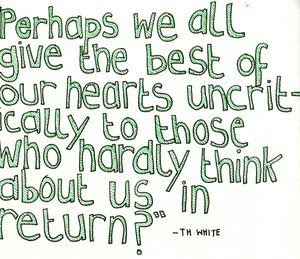 Perhaps we all
give the best of
our hearts uncrit-
ically to those
who hardly think
about us in
return?"
-TH WHITE